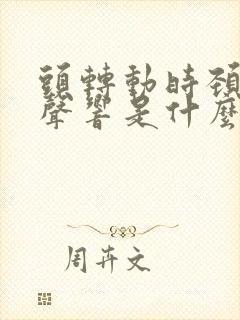 頭轉動時頸
聲響是什麼
周卉文